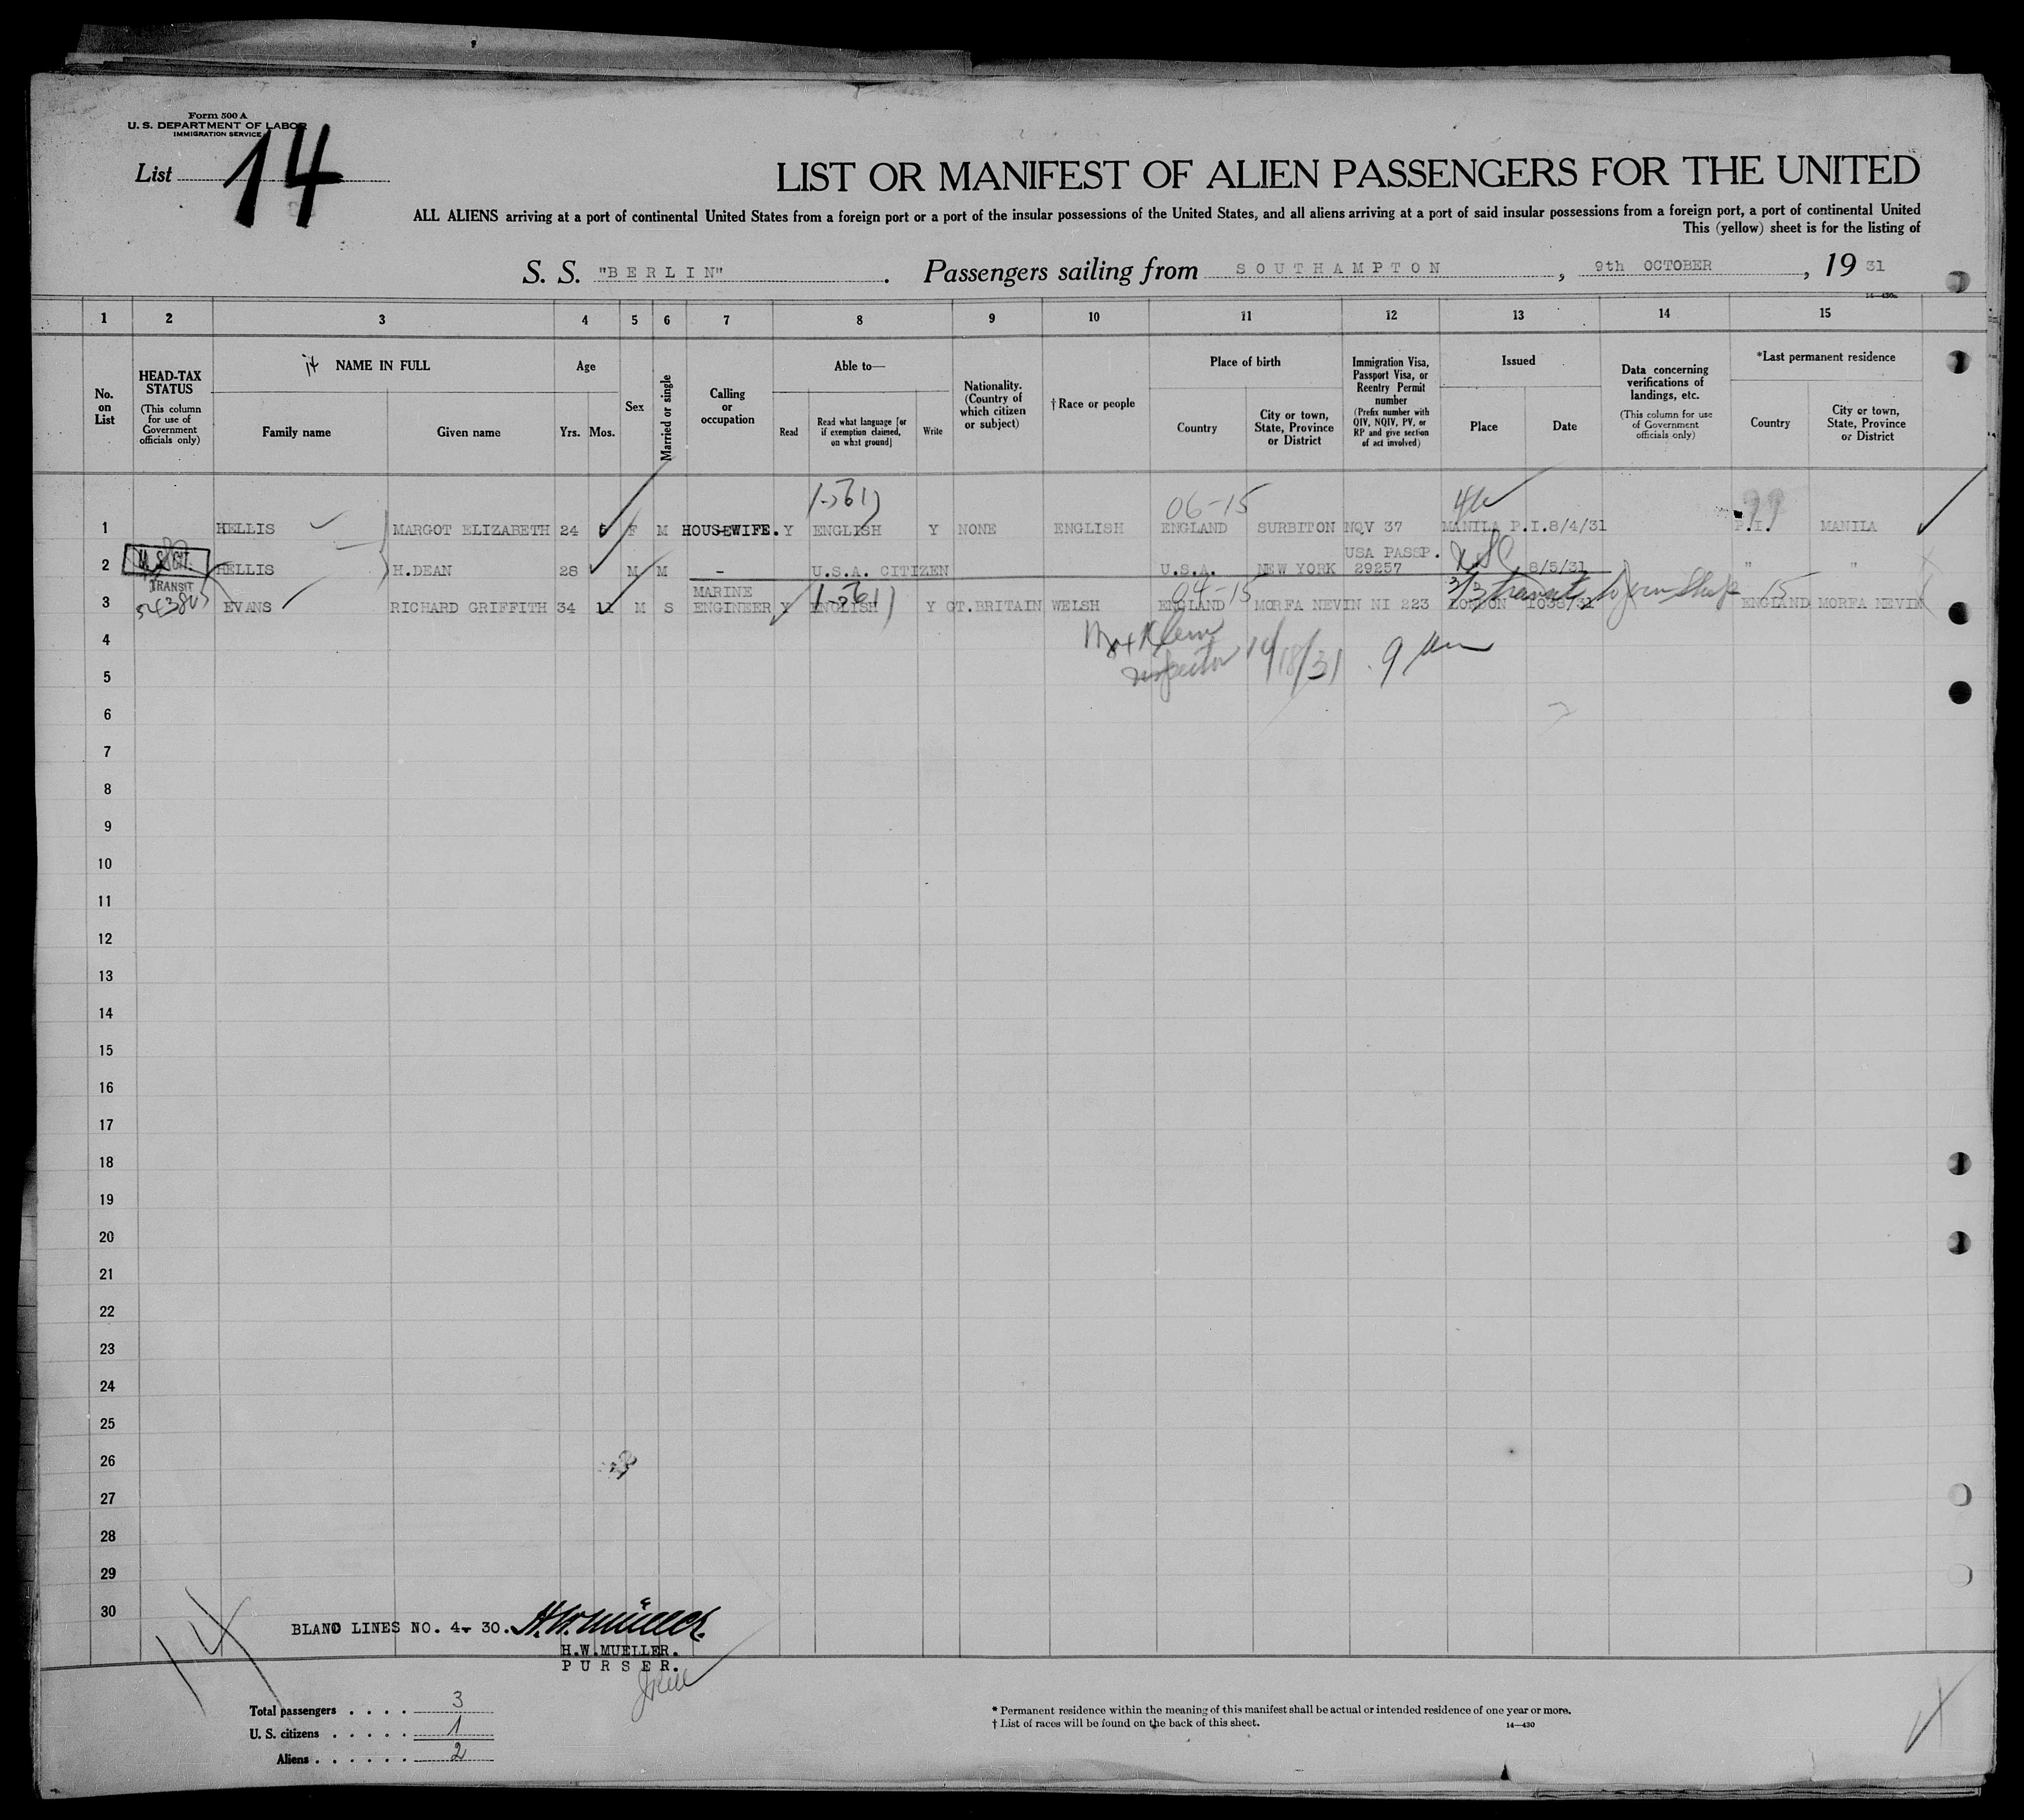 Form 500 A
U. S. DEPARTMENT OF LABOR
IMMIGRATION SERVICE
List 14
LIST OR MANIFEST OF ALIEN PASSENGERS FOR THE UNITED
ALL ALIENS arriving at a port of continental United States from a foreign port or a port of the insular possessions of the United States, and all aliens arriving at a port of said insular possessions from a foreign port, a port of continental United
This (yellow) sheet is for the listing of
S. S. "BERLIN". Passengers sailing from SOUTHAMPTON, 9th OCTOBER, 19 31
14—430a
1 2 3 4 5 6 7 8 9 10 11 12 13 14 15
No. on List
HEAD-TAX STATUS (This column for use of Government officials only)
14 NAME IN FULL
Family name
Given name
Age
Yrs. Mos.
Sex
Married or single
Calling or occupation
Able to—
Read
Read what language [or if exemption claimed, on what ground]
Write
Nationality. (Country of which citizen or subject)
†Race or people
Place of birth
Country
City or town, State, Province or District
Immigration Visa, Passport Visa, or Reentry Permit number (Prefix number with QIV, NQIV, PV, or RP and give section of act involved)
Issued
Place
Date
Data concerning verifications of landings, etc. (This column for use of Government officials only)
*Last permanent residence
Country
City or town, State, Province or District
06-15 99
1 HELLIS MARGOT ELIZABETH 24 F M HOUSEWIFE. Y ENGLISH Y NONE ENGLISH ENGLAND SURBITON NQV 37 MANILA P.I. 8/4/31 P.I. MANILA
USA PASSP.
2 U.S. CIT. HELLIS H.DEAN 28 M M - U.S.A. CITIZEN U.S.A. NEW YORK 29257 8/5/31 " "
TRANSIT MARINE 04-15 3/3 transit to join Ship 15
3 EVANS RICHARD GRIFFITH 34 11 M S ENGINEER Y ENGLISH Y GT.BRITAIN WELSH ENGLAND MORFA NEVIN NI 223 LONDON ENGLAND MORFA NEVIN
4
Inspector 10/18/31 9 am
5
6
7
8
9
10
11
12
13
14
15
16
17
18
19
20
21
22
23
24
25
26
27
28
29
30
14
BLAND LINES NO. 4- 30. H.W. Müller.
H.W.MUELLER.
PURSER.
Total passengers . . . . 3
U. S. citizens . . . . . 1
Aliens . . . . . . 2
* Permanent residence within the meaning of this manifest shall be actual or intended residence of one year or more.
† List of races will be found on the back of this sheet.
14—430